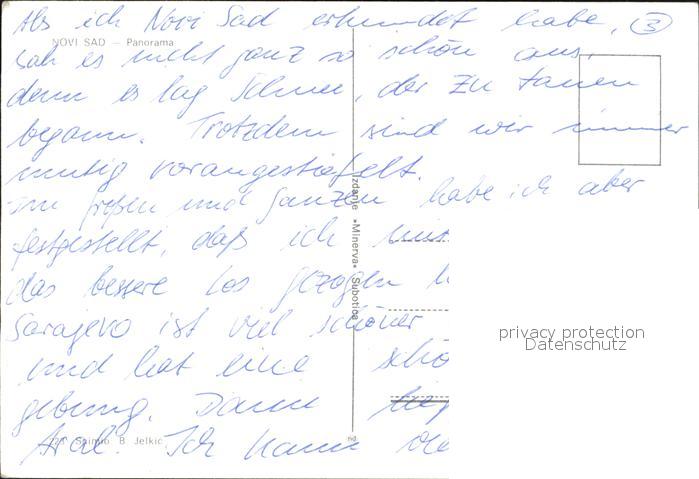 Als ich Novi Sad erkundet habe, ③
NOVI SAD — Panorama
sah es nicht ganz so schön aus,
denn es lag Schnee, der zu tauen
begann. Trotzdem sind wir immer
mutig vorangestiefelt.
Im großen und Ganzen habe ich aber
festgestellt, daß ich
das bessere Los gezogen h
Sarajevo ist viel schöner
und hat eine schö
gebung. Dann
723 Snimio B. Jelkic
Ich kann
Izdanje «Minerva» Subotica
privacy protection
Datenschutz